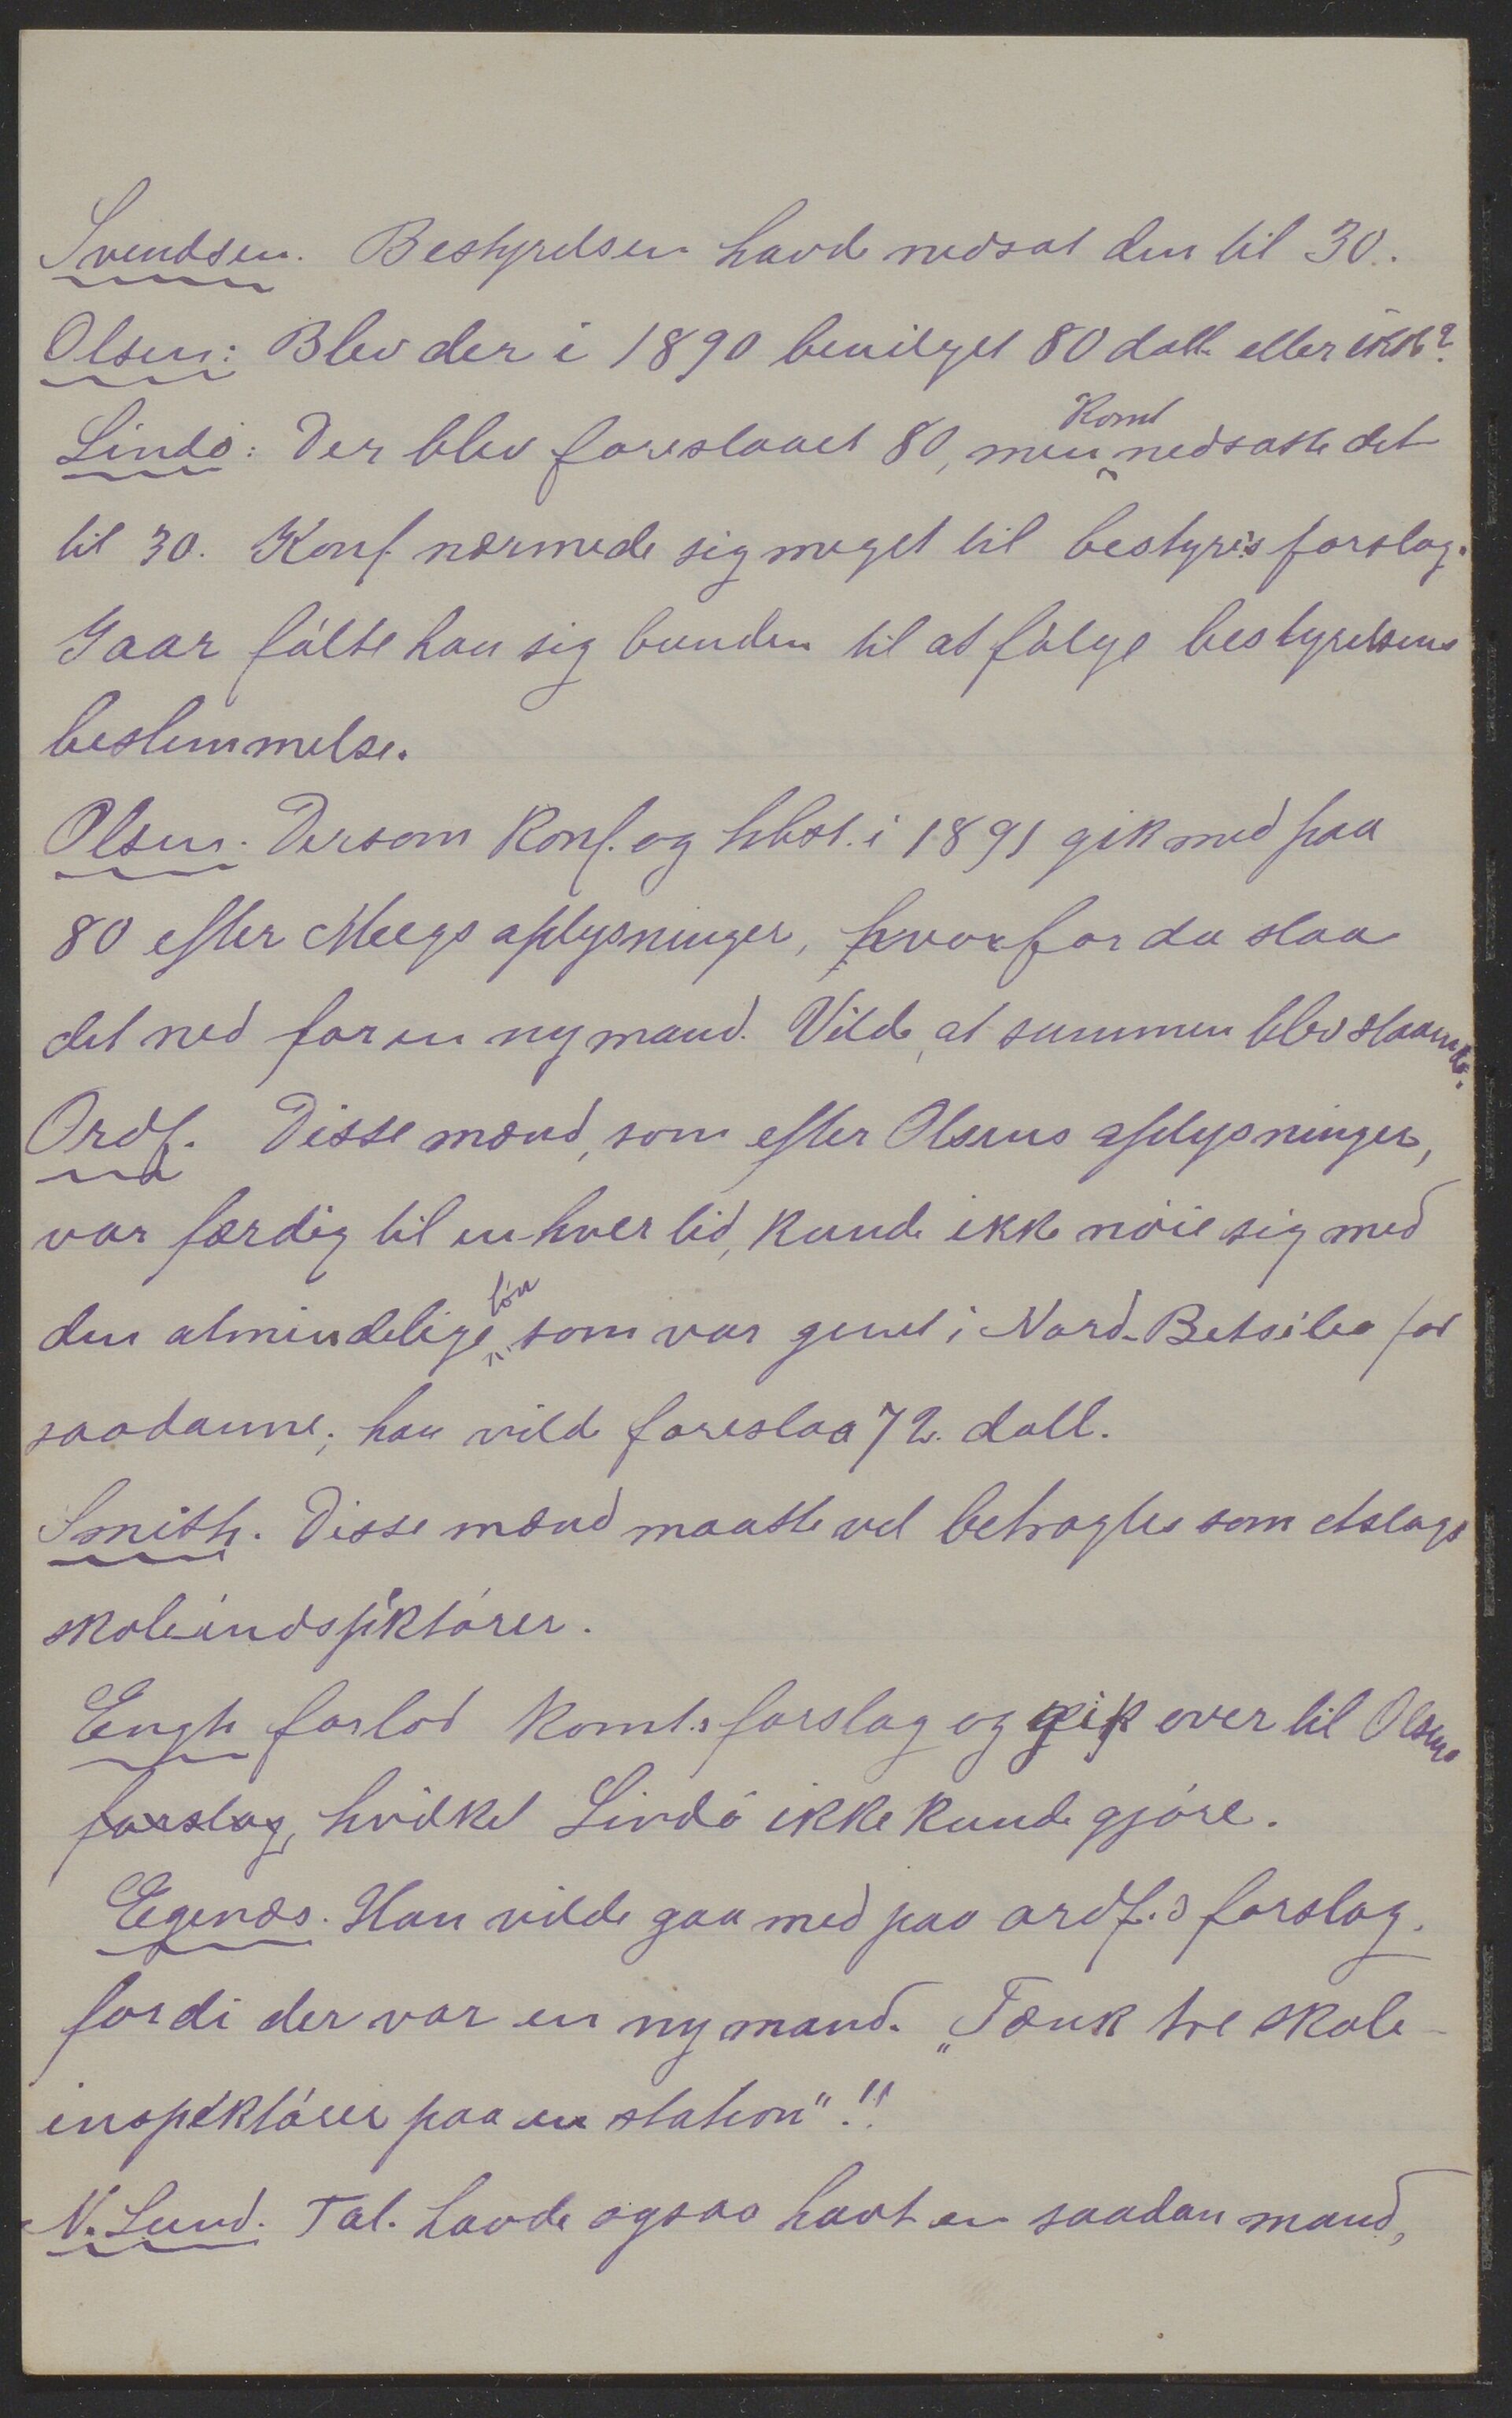 Svendsen. Bestyrelsen havde nedsat den til 30.
Olsen: Blev der i 1890 bevilget 80 doll. eller ikke?
Lindö: Der blev foreslaaet 80, men Komt nedsatte det
til 30. Konf. nærmede sig meget til bestyr.s forslag.
Iaar fölte han sig bunden til at fölge bestyrelsens
bestemmelse.
Olsen. Dersom Konf. og hbst. i 1891 gik med paa
80 efter Meegs oplysninger, hvorfor da slaa
det ned for en ny mand. Vilde, at summen blev staaende.
Ordf. Disse mænd, som efter Olsens oplysninger,
var færdig til enhver tid, kunde ikke nöie sig med
den almindelige lön som var givet i Nord-Betsileo for
saadanne; han vilde foreslaa 72 doll.
Smith. Disse mænd maatte vel betragtes som etslags
skoleindspektörer.
Engh forlod komt.s forslag og gik over til Olsens
forslag, hvilket Lindö ikke kunde gjöre.
Egenæs. Han vilde gaa med paa ordf.s forslag.
fordi der var en ny mand. „Tænk tre skole-
inspektörer paa en station"!!
N. Lund. Tal. havde ogsaa havt en saadan mand,